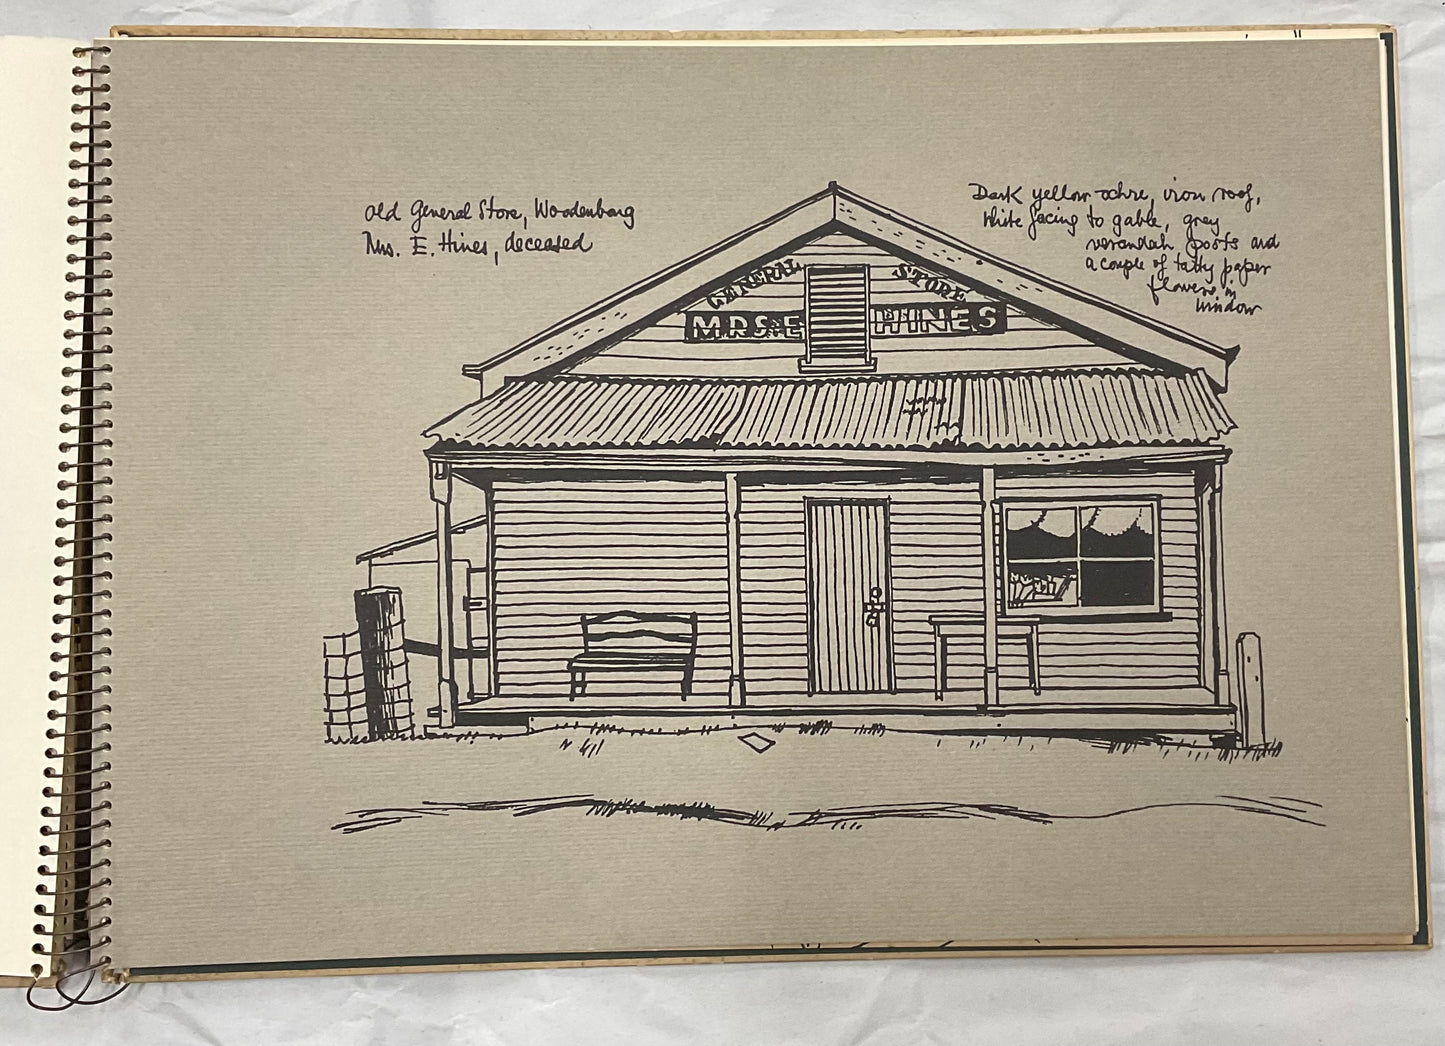 Old General Store, Woodenbong
Mrs. E. Hines, deceased
Dark yellow ochre, iron roof,
white facing to gable, grey
verandah posts and
a couple of tatty paper
flowers in
window
GENERAL STORE
MRS. E HINES